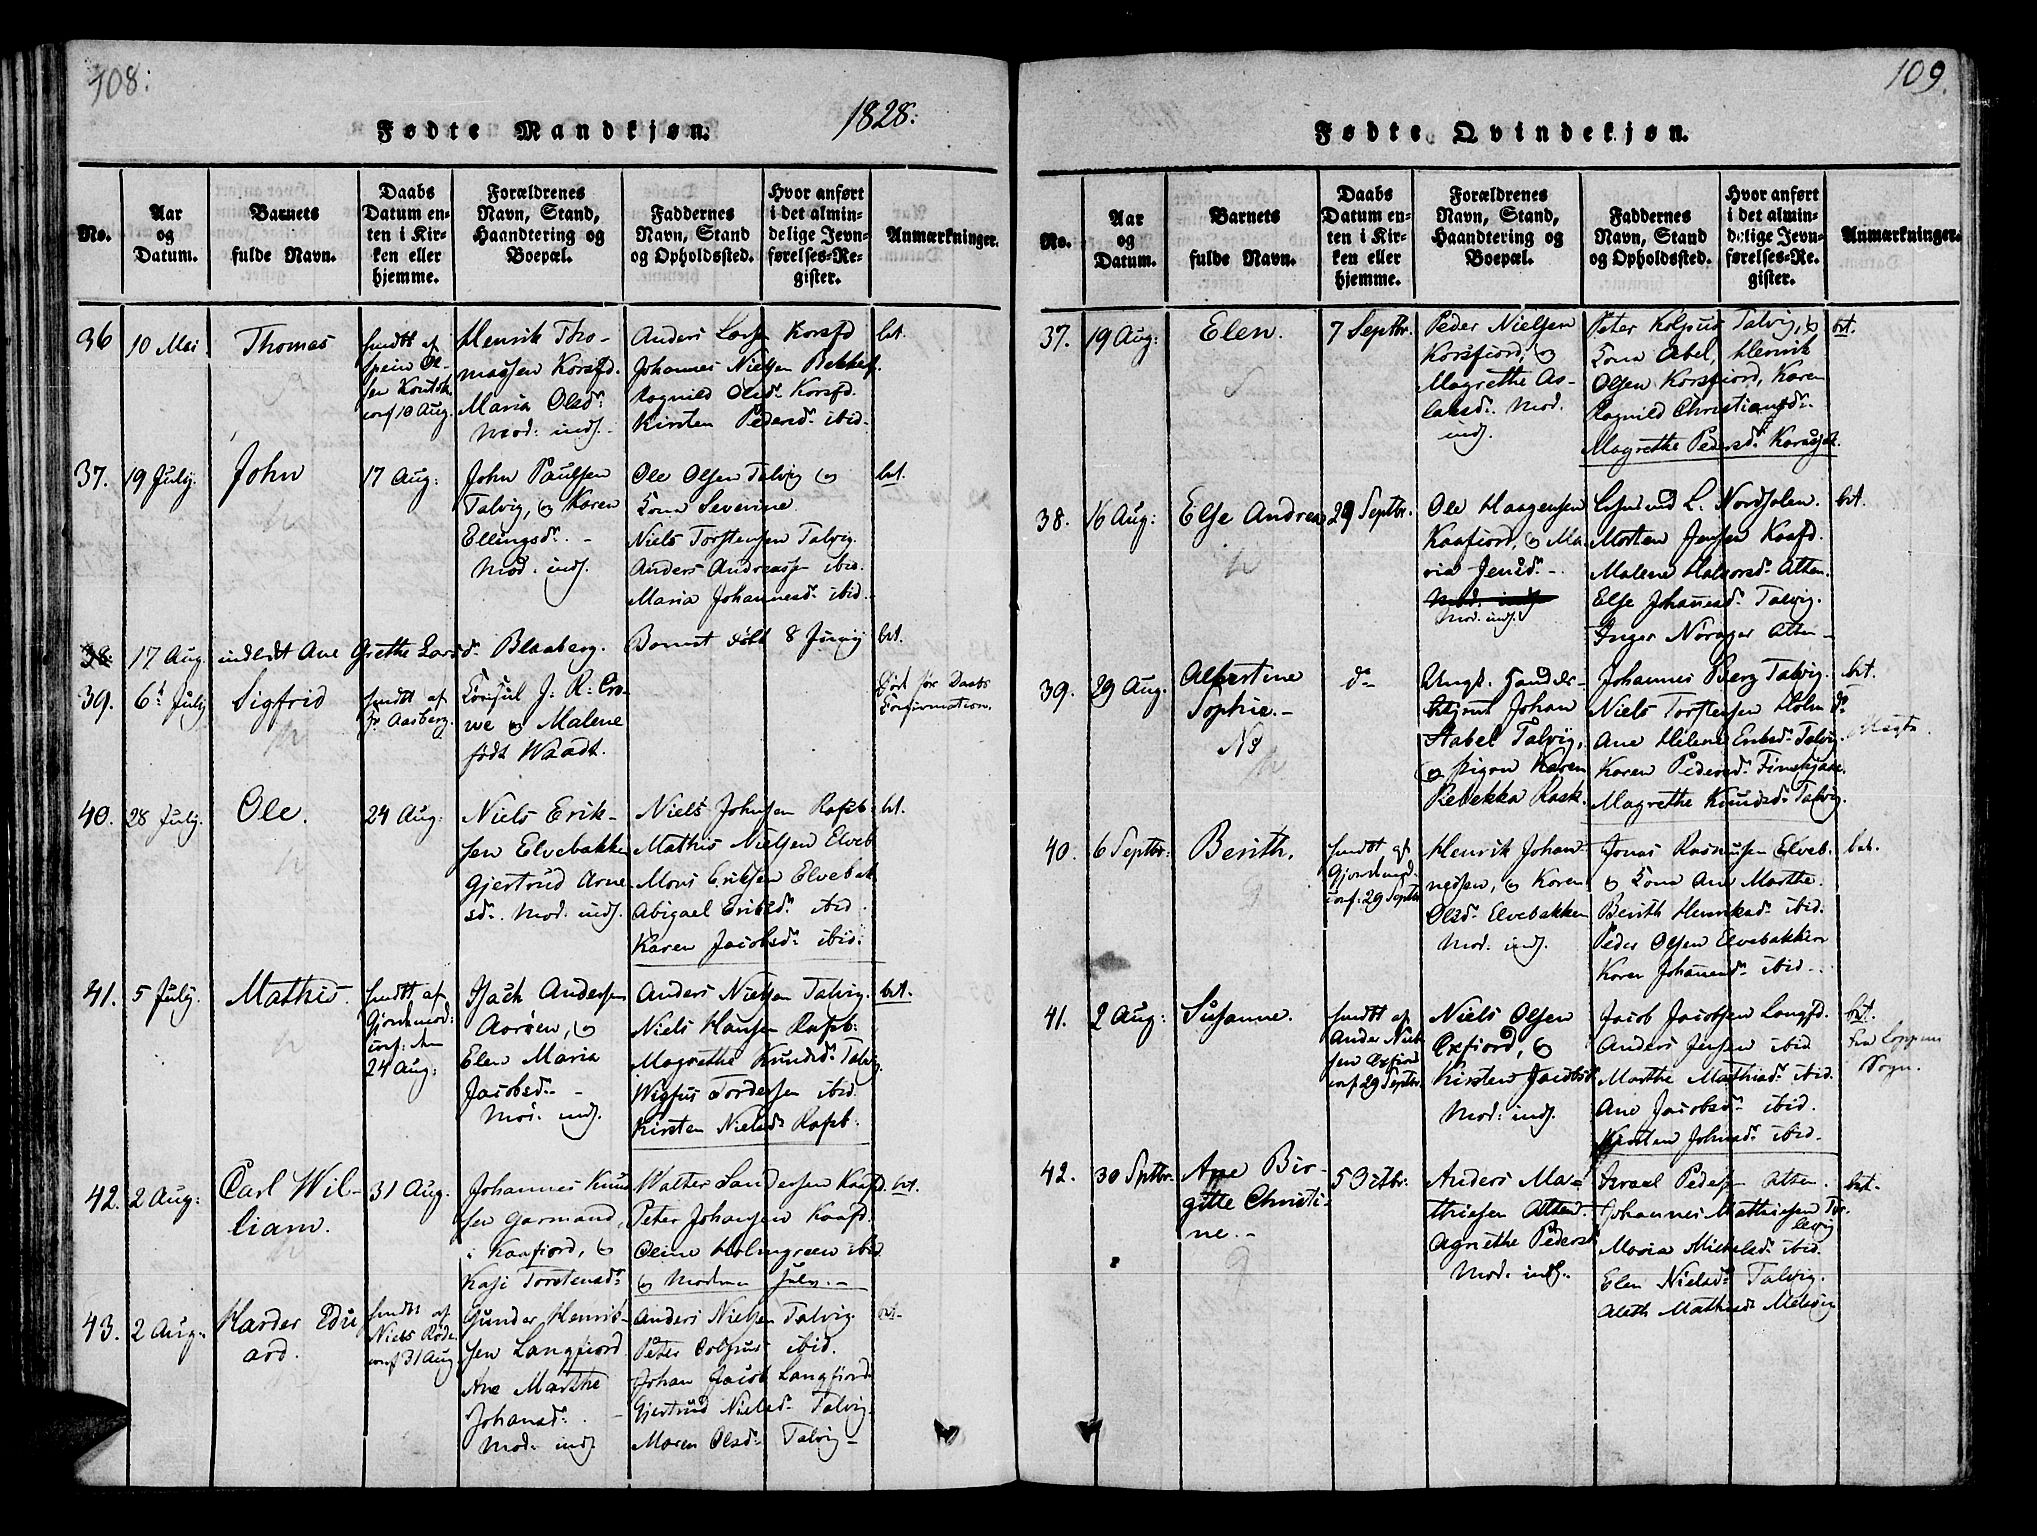 108:
1828:
Fødte Mandkjøn.
No.
Aar
og
Datum.
Barnets
fulde Navn.
Daabs
Datum en-
ten i Kir-
ken eller
hjemme.
Forældrenes
Navn, Stand,
Haandtering og
Boepæl.
Faddernes
Navn, Stand
og Opholdssted.
Hvor anført
i det almin-
delige Jevn-
førelses-Re-
gister.
Anmærkninger.
36
10 Mai
Thomas
hmdtt af
Spein Ol-
sen
conf 10 Aug.
Henrik Tho-
massen Korsfd.
Maria Olsdr.
Mod. indf.
Anders Larsen Korsfd
Johannes Nielsen Bekkef.
Ragnild Olsdr. Korsfd.
Kirsten Pedersdr. ibid.
bet.
37.
19 July.
John
17 Aug:
John Paulsen
Talvig, og Karen
Ellingsdr. -
Mod. indf.
Ole Olsen Talvig og
Kona Severine
Niels Torstensen Talvig.
Anders Andreass ibid.
Maria Johannesdr. ibid.
bet.
38.
17 Aug. indledt Ane Grethe Larsdr. Blaaberg. Barnet født 8 Juny bet.
39.
6t July
Sigfrid
hmdtt af
Pr. Aasberg.
Consul J: R: Cro-
we og Malene
født Waadt.
død før Daabs
Confirmation.
40.
28 July.
Ole.
24 Aug:
Niels Erik-
sen Elvebakke
Gjertrud Arne
sdr. Mod. indf.
Niels Johnsen Rafsb.
Mathis Nielsen Elveb
Mons Eriksen Elvebak
Abigael Eriksdr. ibid.
Karen Jacobsdr. ibid.
bet.
41.
5 July.
Mathis.
hmdtt af
Gjordemod:
conf: den
24 Aug:
Isach Andersen
Aarøen, og
Elen Maria
Jacobsdr. -
Mod. indf.
Anders Nielsen Talvig.
Niels Hansen Rafsb:
Magrethe Knudsdr. Talvig
Wigfus Tordersen ibid.
Kirsten Nielsdr Rafsb.
bet.
42.
2 Aug:
Carl Wil-
liam.
31 Aug.
Johannes Knud
sen Garmand,
i Kaafjord, og
Kasi Torstensdr.
Walter Sandersen Kaafd.
Peter Johansen Kaafd.
Oline Holmgreen ibid
og Modme July. -
bet.
43.
2 Aug.
Harder Edu
ard.
hmdtt af
Niels Røde
conf 31 Aug
Gunder Henrik-
sen Langfjord
Ane Marthe
Johansdr.
Mod. indf.
Anders Nielsen Talvig.
Peter Colpus ibid.
Johan Jacob Langfjord
Gjertrud Nielsd. Talvig.
Maren Olsdr Talvig -
bet.
109.
Fødte Qvindekjøn.
No.
Aar
og
Datum.
Barnets
fulde Navn.
Daabs
Datum en-
ten i Kir-
ken eller
hjemme.
Forældrenes
Navn, Stand,
Haandtering og
Boepæl.
Faddernes
Navn, Stand
og Opholdssted.
Hvor anført
i det almin-
delige Jevn-
førelses-Re-
gister.
Anmærkninger.
37.
19 Aug:
Elen.
7 Septbr.
Peder Nielsen
Korsfiord, og
Magrethe As-
laksdr. Mod.
indf.
Peter Kolpus Talvig, og
Kona Abel, Henrik
Olsen Korsfiord, Karen
Ragnild Christiansdr.
Magrethe Pedersdr. Korsfjd.
bet.
38.
16 Aug:
Else Andrea
29 Septbr.
Ole Haagensen
Kaafiord, og Ma-
ria Jensdr. -
Mod. indf
Mod. indf.
L. Nordsolen.
Morten Jensen Kaafd.
Malene Halvorsdr. Alten.
Else Johansdr. Talvig.
Inger Norager Alten -
bet.
39.
29 Aug.
Albertine
Sophie. -
N3
do
Ungk. Handels-
betjent Johan
Aabel Talvig,
og pigen Karen
Rebekka Rask.
Johannes Berg Talvig.
Niels Torstensen Holm do
Ane Helene Eriksdr. Talvig.
Karen Pedersdr. Finskjære.
Magrethe Knudsdr. Talvig.
bet.
40.
6 Septbr.
Berith.
hmdtt af
Gjordemod.
conf. 29 Septbr
Henrik Johan-
nessen, og Karen
Olsdr. Elvebakken
Mod. indf.
Jonas Rasmusen Elveb.
og Kona Ane Marthe.
Berith Henriksdr. ibid.
Peder Olsen Elvebakken
Karen Johansdr. ibid.
bet.
41.
2 Aug:
Susanne.
hmdtt af
Ander Niel-
sen Oxfiord
conf. 29 Septbr.
Niels Olsen
Oxfiord, og
Kirsten Jacobsdr
Mod: indf.
Jacob Jacobsen Langfd.
Anders Jensen ibid
Marthe Mathiasdr. ibid.
Ane Jacobsdr. ibid.
Kirsten Johnsdr. ibid.
bet.
Fra Loppens
Sogn.
42.
30 Septbr.
Ane Bir-
gitte Christi-
ne. -
5 Octbr.
Anders Ma-
thiesen Alten.
Agnethe Pedersd
Mod. indf.
Israel Peders Alten.
Johannes Mathiesen Tal-
vig
Maria Mickelsdr. ibid.
Elen Nielsdr. Talvig.
Aleth Mathiasd
bet.